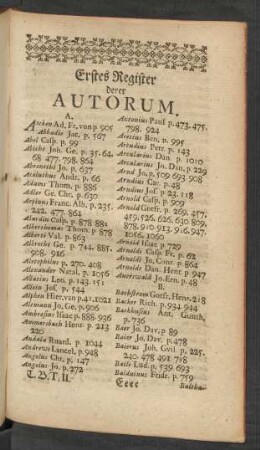 Erstes Register
derer
AUTORUM.
A.
Aschan Ad. Fr. von p. 905
Abbadie Jac. p. 567
Abel Casp. p. 99
Abicht Joh. Ge. p. 35. 64.
68. 477. 798. 864
Abrenethi Jo. p. 637
Acoluthus Andr. p. 66
Adami Thom. p. 886
Adler Ge. Chr. p. 630
Aepinus Franc. Alb. p. 235.
242. 477. 864
Alardus Casp. p. 878 881
Albericianus Thom. p. 878
Alberti Val. p. 863
Albrecht Ge. p. 744. 885.
908. 916
Alethophilus p. 270. 408
Alexander Natal. p. 1056
Allatius Leo. p. 143. 151
Allein Jos. p. 544
Alphen Hier. van p. 41. 1021
Alemann Jo. Ge. p. 906
Ambrosius Isaac p. 888. 936
Ammersbach Henr. p. 213
220
Andala Ruard. p. 1044
Andrews Lancel. p. 948
Angelus Chr. p. 147
Angelus Jo. p. 272
T. B. T. II.
Antonius Paul p. 473. 475.
798. 924
Aretius Ben. p. 995
Arcudius Petr. p. 143
Arcularius Dan. p. 1010
Arcularius Jo. Dan. p. 229
Arnd Jo. p. 509 693. 908
Arndius Car. p. 48
Arndius Jos. p. 23. 118
Arnold Casp. p. 909
Arnold Gottfr. p. 269. 457.
459. 526. 626. 630 809.
878. 910 913. 916. 947.
1056. 1069
Arnold Isaac p. 729
Arnoldi Casp. Fr. p. 62
Arnoldi Jo. Conr. p. 864
Arnoldi Dan. Henr. p. 947
Auerswald Jo. Ern. p. 48
B.
Bachstrom Gottfr. Henr. 218
Bacher Rich. p. 934. 944
Backhusius Ant. Gunth.
p. 736
Baier Jo. Dav. p 89
Baier Jo. p. 478
Baierus Joh. Gvil. p. 225.
240. 478 491 718
Baile Lud. p. 539 693
Balduinus Fridr. p. 759
Eeee